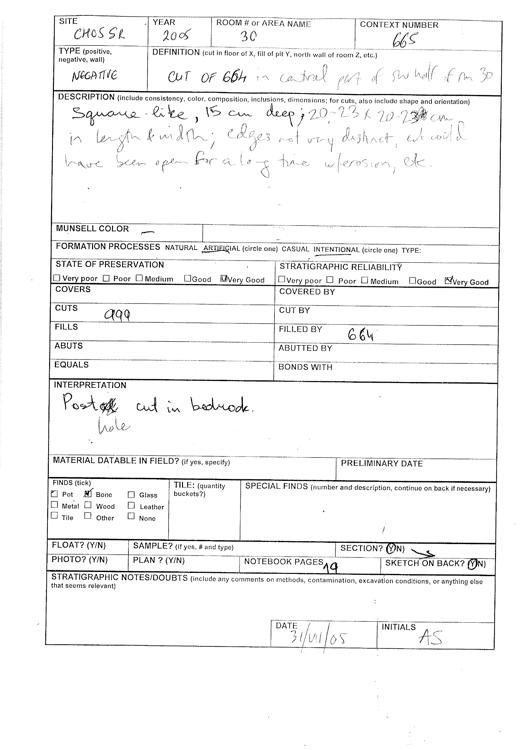 SITE YEAR ROOM # or AREA NAME CONTEXT NUMBER
CHOSSR 2005 30 665
TYPE (positive, negative, wall) DEFINITION (cut in floor of X, fill of pit Y, north wall of room Z, etc.)
NEGATIVE CUT OF 664 in central part of SW half of rm 30
DESCRIPTION (include consistency, color, composition, inclusions, dimensions; for cuts, also include shape and orientation)
Square-like, 15 cm deep; 20-23 x 20-23 cm
in length & width; edges not very distinct, cut could
have been open for a long time w/erosion, etc.
MUNSELL COLOR —
FORMATION PROCESSES NATURAL ARTIFICIAL (circle one) CASUAL INTENTIONAL (circle one) TYPE:
STATE OF PRESERVATION STRATIGRAPHIC RELIABILITY
Very poor Poor Medium Good Very Good Very poor Poor Medium Good Very Good
COVERS COVERED BY
CUTS 999 CUT BY
FILLS FILLED BY 664
ABUTS ABUTTED BY
EQUALS BONDS WITH
INTERPRETATION
Post cut in bedrock.
hole
MATERIAL DATABLE IN FIELD? (if yes, specify) PRELIMINARY DATE
FINDS (tick) TILE: (quantity buckets?) SPECIAL FINDS (number and description, continue on back if necessary)
Pot Bone Glass
Metal Wood Leather
Tile Other None
FLOAT? (Y/N) SAMPLE? (if yes, # and type) SECTION? (Y/N)
PHOTO? (Y/N) PLAN ? (Y/N) NOTEBOOK PAGES 19 SKETCH ON BACK? (Y/N)
STRATIGRAPHIC NOTES/DOUBTS (include any comments on methods, contamination, excavation conditions, or anything else
that seems relevant)
DATE INITIALS
31/VII/05 AS